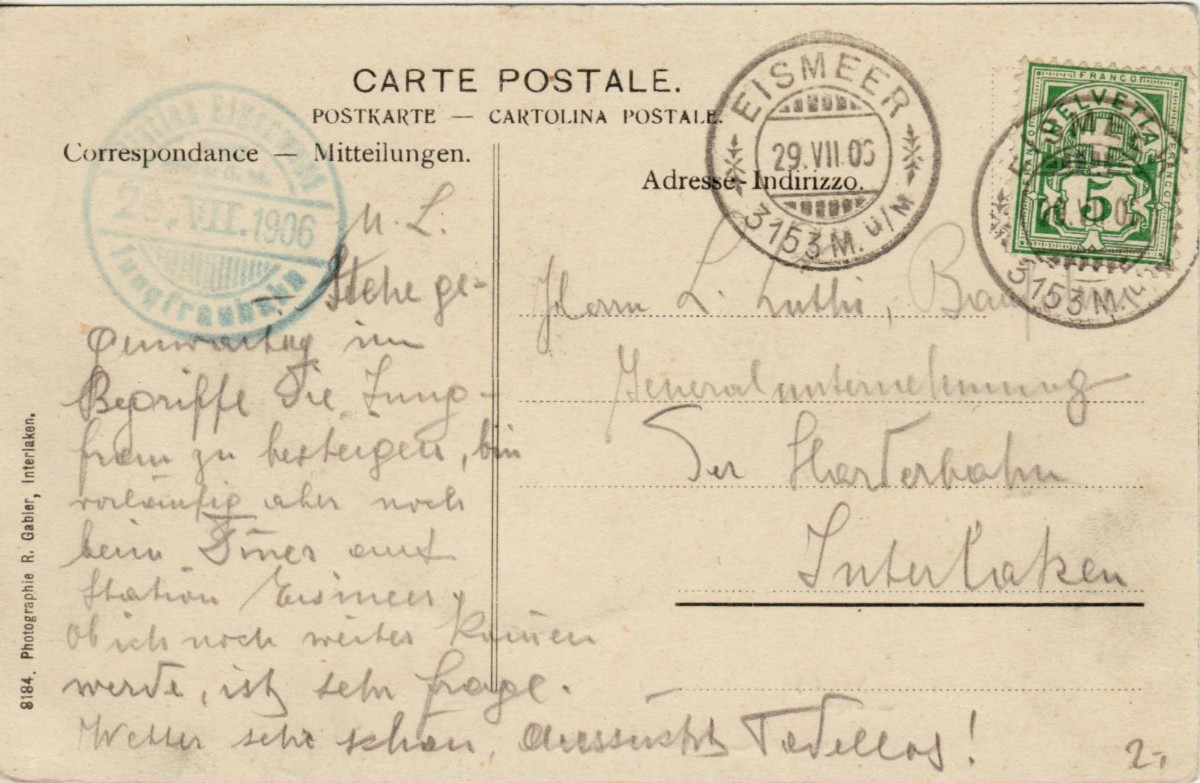 CARTE POSTALE.
POSTKARTE — CARTOLINA POSTALE.
Correspondance — Mitteilungen.
Adresse-Indirizzo.
Station Eismeer
VII.1906
Jungfraubahn
EISMEER
29.VII.06
3153 M. ü/M
FRANCO
HELVETIA
FRANCO
FRANCO
5
EISMEER
3153 M. ü/M
M. L.
Stehe ge-
genwärtig im
Begriffe die Jung-
frau zu besteigen, bin
vorläufig aber noch
beim Diner auf
Station Eismeer,
Ob ich noch weiter kommen
werde, ist sehr frage.
Wetter sehr schön, Aussicht Tadellos!
Herrn L. Luthi,
Generalunternehmung
der Harderbahn
Interlaken
8184. Photographie R. Gabler, Interlaken.
2.-